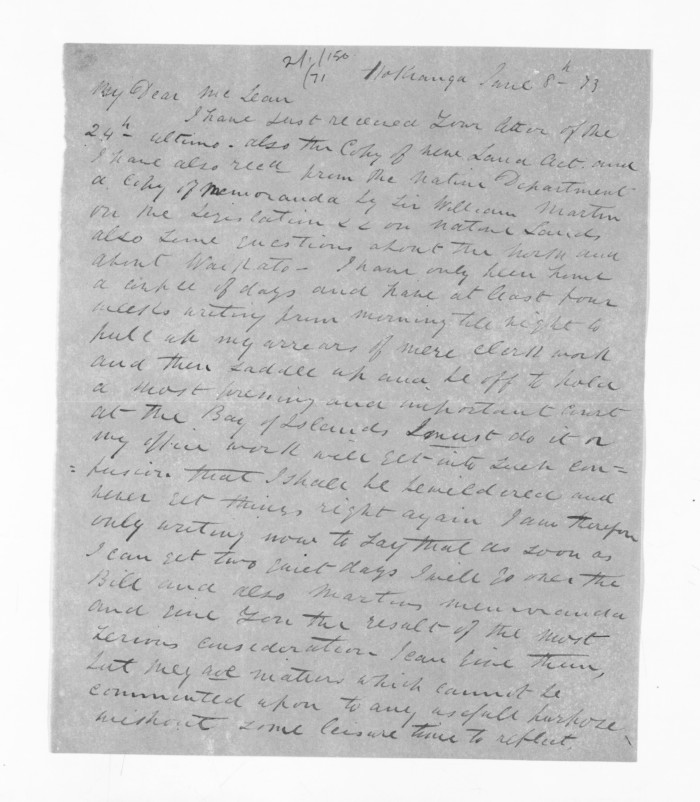 2/1/150
/71
Hokianga June 8th 73
My Dear McLean
I have just received your letter of the
24th ultimo. also the Copy of new Land Act. and
I have also recd from the Native Department
a copy of memoranda by Sir William Martin
on the Legislation &c on Native Lands
also some questions about the North and
about Waikato - I have only been home
a couple of days and have at least four
weeks writing from morning till night to
pull up my arrears of mere clerk work
and then saddle up and be off to hold
a most pressing and important Court
at the Bay of Islands I must do it or
my office work will get into such con=
=fusion that I shall be bewildered and
never get things right again I am therefore
only writing now to say that as soon as
I can get two quiet days I will go over the
Bill and also Martins memoranda
and give you the result of the most
serious consideration I can give them,
but they are matters which cannot be
commented upon to any usefull purpose
without some leisure time to reflect.